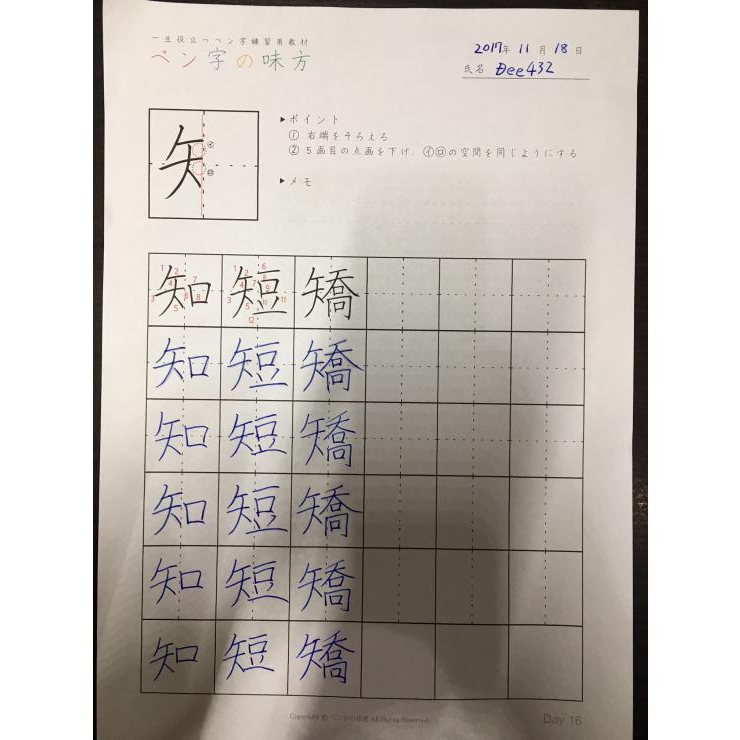 一生役立つペン字練習用教材
ペン字の味方
2017年 11月 18日
氏名 Dee432
矢
イ
ロ
▶ポイント
① 右端をそろえる
② 5画目の点画を下げ、㋑㋺の空間を同じようにする
▶メモ
知 短 矯
知 短 矯
知 短 矯
知 短 矯
知 短 矯
知 短 矯
All Rights Reserved.
Day 16